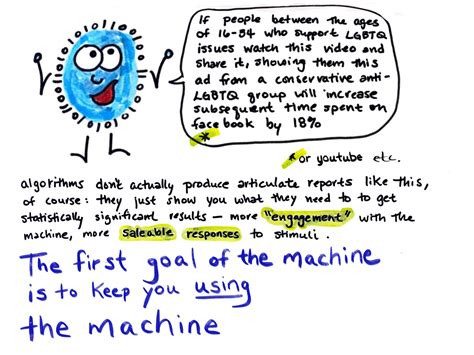 If people between the ages
of 16-54 who support LGBTQ
issues watch this video and
share it, showing them this
ad from a conservative anti-
LGBTQ group will increase
subsequent time spent on
facebook by 18%
*
* or youtube etc.
algorithms don't actually produce articulate reports like this,
of course: they just show you what they need to to get
statistically significant results — more "engagement" with the
machine, more saleable responses to stimuli.
The first goal of the machine
is to keep you using
the machine